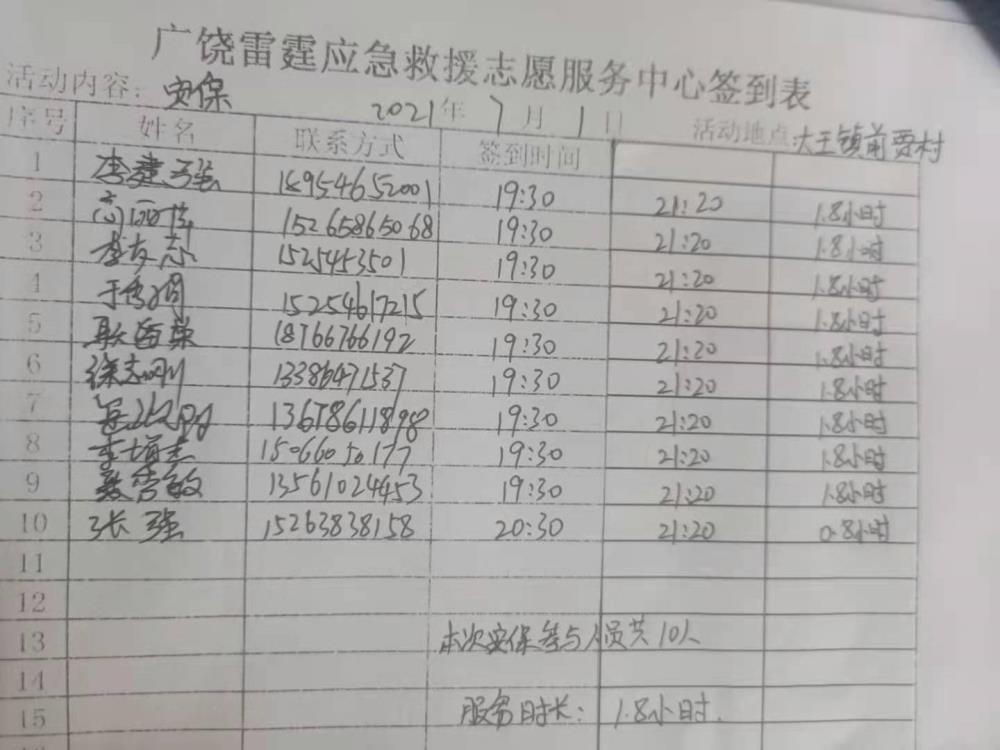 广饶雷霆应急救援志愿服务中心签到表
活动内容：安保 2021年7月1日 活动地点：大王镇前贾村
序号 姓名 联系方式 签到时间
1 李建强 18954652001 19:30 21:20 1.8小时
2 15265865068 19:30 21:20 1.8小时
3 李友志 1525453501 19:30 21:20 1.8小时
4 15254617215 19:30 21:20 1.8小时
5 18766766192 19:30 21:20 1.8小时
6 徐志刚 13386471537 19:30 21:20 1.8小时
7 13678611898 19:30 21:20 1.8小时
8 15066050177 19:30 21:20 1.8小时
9 13561024453 19:30 21:20 1.8小时
10 张强 15263838158 20:30 21:20 0.8小时
11
12
13 本次安保参与人员共10人
14
15 服务时长：1.8小时.